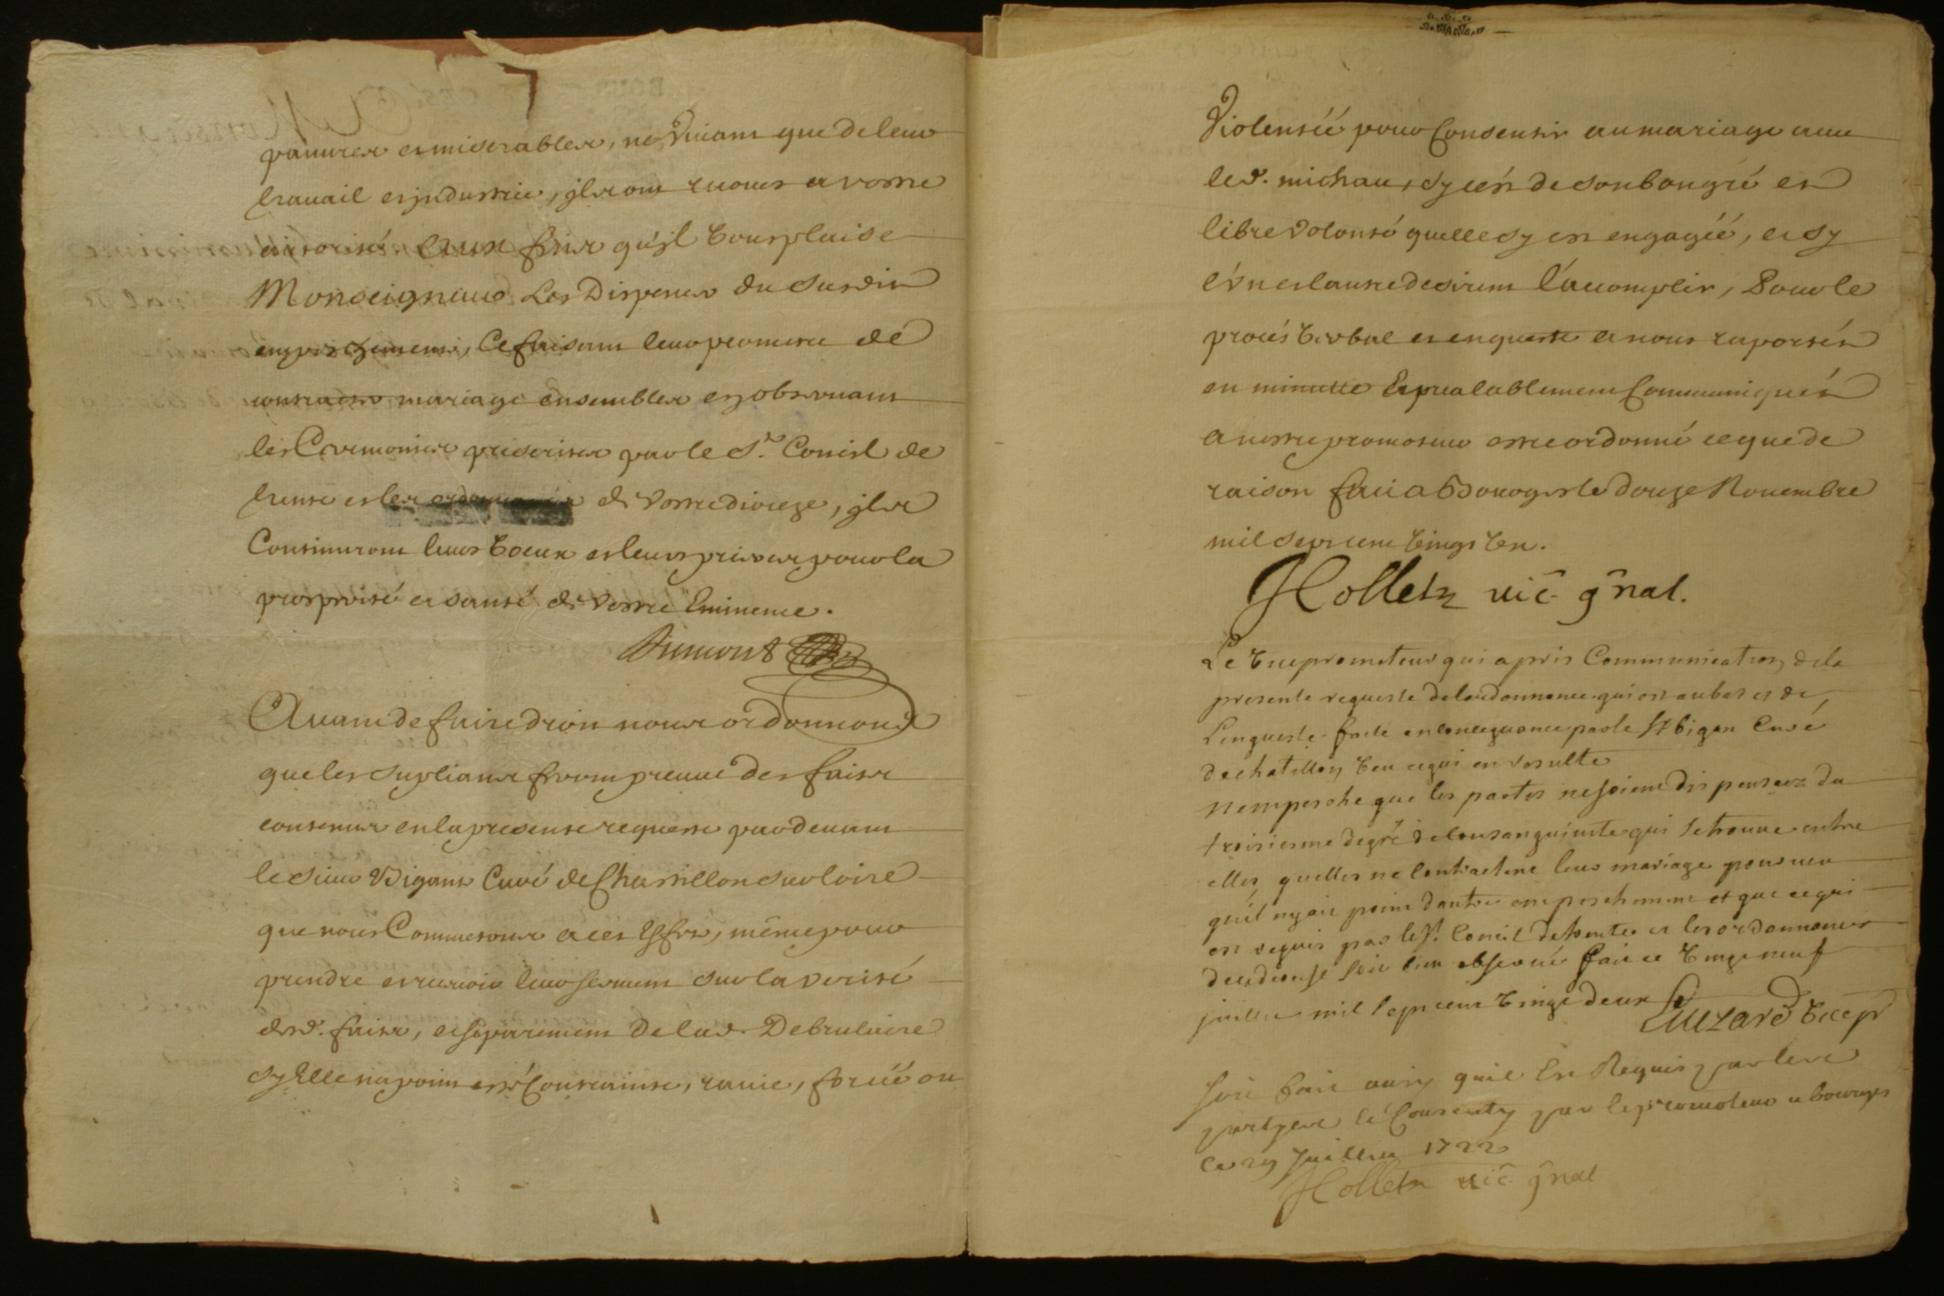 pauvres et miserables, ne vivant que de leur
travail et jndustrie, jls ont recours a vostre
autorité aux fins qu'jl vous plaise
Monseigneur Les Dispenser du susdit
empeschement, Ce faisant leur permettre de
contracter mariage ensembles en observant
les Ceremonies prescrites par le St. Concil de
trente et les ordonnances de vostre dioceze, jls
Continuront leurs voeux et leurs prieres pour la
prosperité et santé de Vostre Eminence.
Dumont
Avant de faire droit nous ordonnons
que les suplians feront preuve des faits
contenus en la presente requeste pardevant
le sieur Vigant Curé de Chastillon sur loire
que nous Commettons a cet effet, même pour
prendre et recevoir leur serment sur la verité
desd. faits, et separement de lad. Debrulaire
sy Elle na point esté Contrainte, ravie, forcéé ou
Violentéé pour Consentir au mariage avec
led. michau, sy c'est de son bon gré et
libre volonté quelle sy est engagéé, et sy
l'un et lautre desirent l'accomplir, Pour le
procés verbal et enqueste a nous raportés
en minutte Et prealablement Communiqués
a nostre promoteur estre ordonné ce que de
raison fait a Bourges le douze Novembre
mil sept cent vingt un.
Holletz vic gnal.
Le viceprometeur qui a pris Communication de la
presente requeste de lordonnance qui est au bas et de
Lenqueste faite en consequance par le Sr Vigan Curé
de chatillon veu ce qui en resulte
Nempesche que les parties ne soient dispensez du
troisiesme degré de consanguinité qui se trouve entre
elles quelles ne contractent leur mariage pourveu
quil ny ait point d'autre empeschement et que ce qui
est requis par le St. Concil de trente et les ordonnances
du diocese soit bien observé fait ce vingt neuf
juillet mil sept cent vingt deux
Cuzard vicep
Soit fait ainsy quil Est Requis par les
parties et Consenty par le promoteur a bourges
ce 29 Juillet 1722
Holletz vic gnal